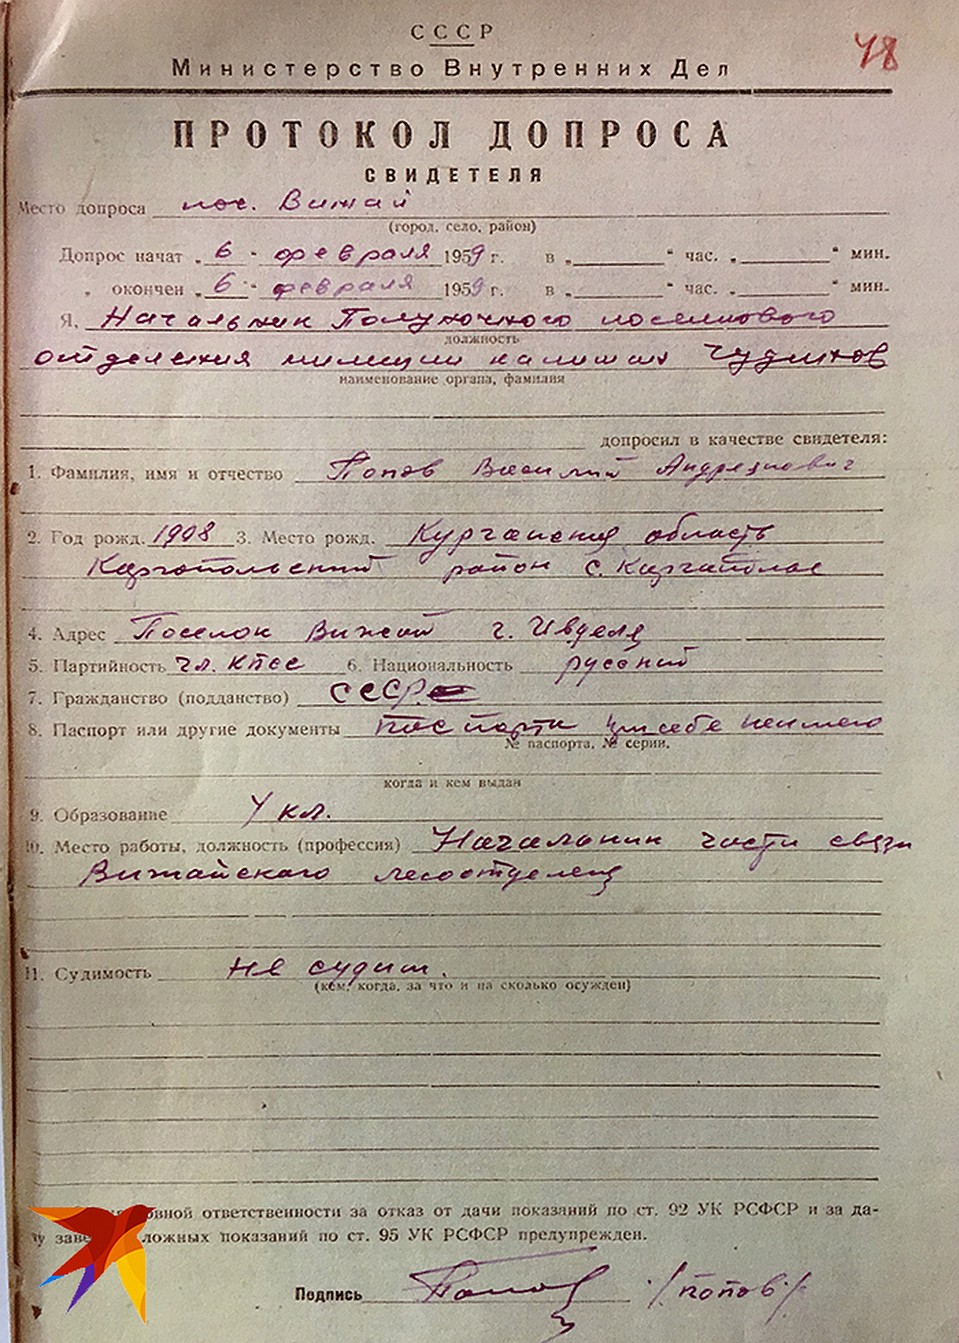 СССР
48
Министерство Внутренних Дел
ПРОТОКОЛ ДОПРОСА
СВИДЕТЕЛЯ
Место допроса пос. Вижай
(город, село, район)
Допрос начат „ 6 " февраля 1959 г. в „ " час. „ " мин.
„ окончен „ 6 " февраля 1959 г. в „ " час. „ " мин.
Я, Начальник Полуночного поселкового
должность
отделения милиции капитан Чудинов
наименование органа, фамилия
допросил в качестве свидетеля:
1. Фамилия, имя и отчество Попов Василий Андреянович
2. Год рожд. 1908 3. Место рожд. Курганская область
Каргопольский район с. Каргаполье
4. Адрес Поселок Вижай г. Ивделя
5. Партийность чл. КПСС 6. Национальность русский
7. Гражданство (подданство) СССР
8. Паспорт или другие документы паспорта при себе неимею
№ паспорта, № серии,
когда и кем выдан
9. Образование 4 кл.
10. Место работы, должность (профессия) Начальник части связи
Вижайского лесоотделен
11. Судимость не судим.
(кем, когда, за что и на сколько осужден)
овной ответственности за отказ от дачи показаний по ст. 92 УК РСФСР и за да-
у заве ложных показаний по ст. 95 УК РСФСР предупрежден.
Подпись Попов /попов/